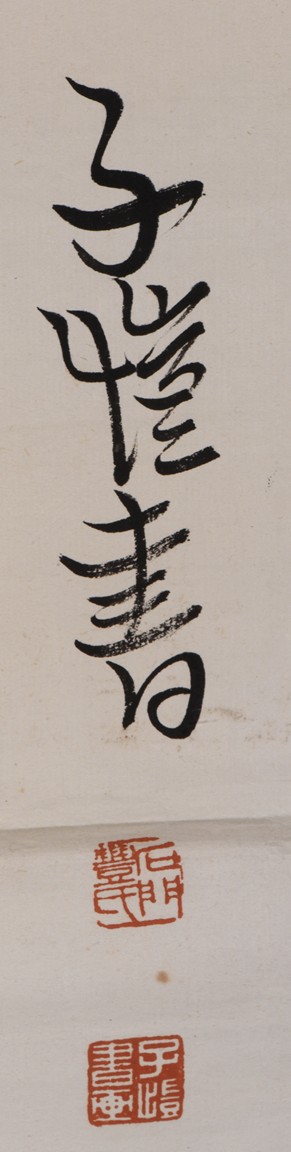 子愷書
石門豐氏
子愷書畫